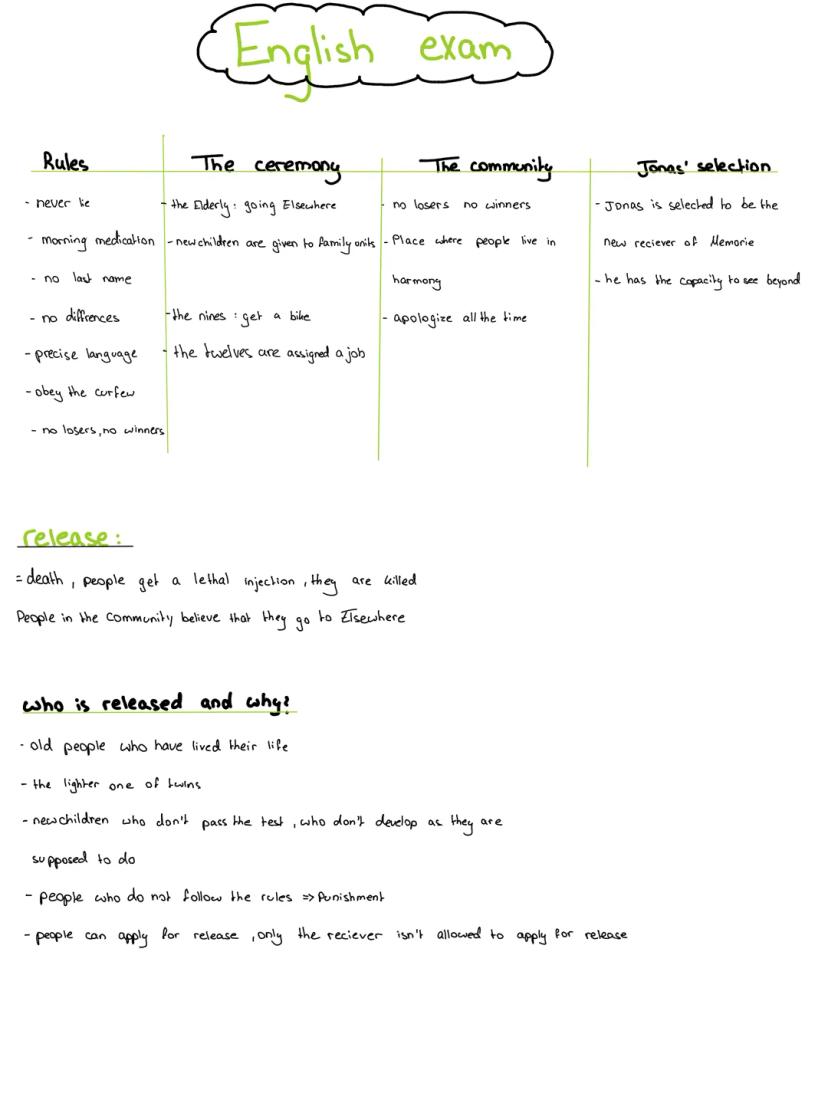 English exam
Rules
- never lie
- morning medication
- no last name
- no diffrences
- precise language
- obey the curfew
- no losers, no winners
The ceremony
- the Elderly : going Elsewhere
- newchildren are given to family units
- the nines : get a bike
- the twelves are assigned a job
The community
- no losers no winners
- Place where people live in
harmony
- apologize all the time
Jonas' selection
- Jonas is selected to be the
new reciever of Memorie
- he has the capacity to see beyond
release:
= death, people get a lethal injection, they are killed
People in the community believe that they go to Elsewhere
who is released and why?
- old people who have lived their life
- the lighter one of twins
- newchildren who don't pass the test, who don't develop as they are
supposed to do
- people who do not follow the rules => Punishment
- people can apply for release, only the reciever isn't allowed to apply for release